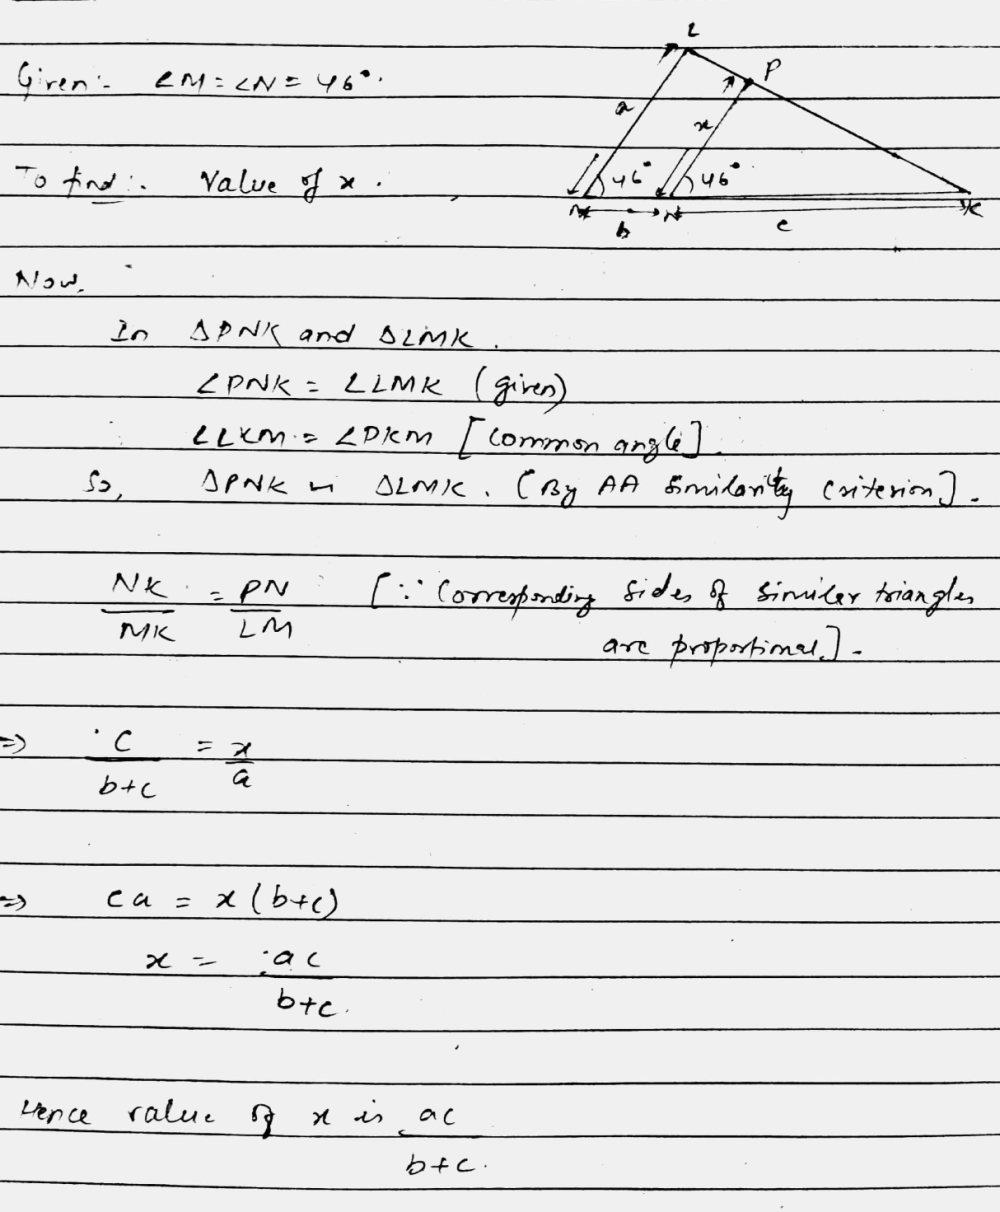 Given:- ∠M = ∠N = 46°.
To find:- Value of x.
L
P
a
x
46°
46°
M
N
K
b
c
Now,
In ΔPNK and ΔLMK.
∠PNK = ∠LMK (given)
∠LKM = ∠PKM [common angle].
So, ΔPNK ~ ΔLMK. [By AA Similarity Criterion].
NK/MK = PN/LM [∵ Corresponding Sides of Similar triangles
are proportional].
=> c/b+c = x/a
=> ca = x(b+c)
x = ac/b+c.
Hence value of x is ac/b+c.